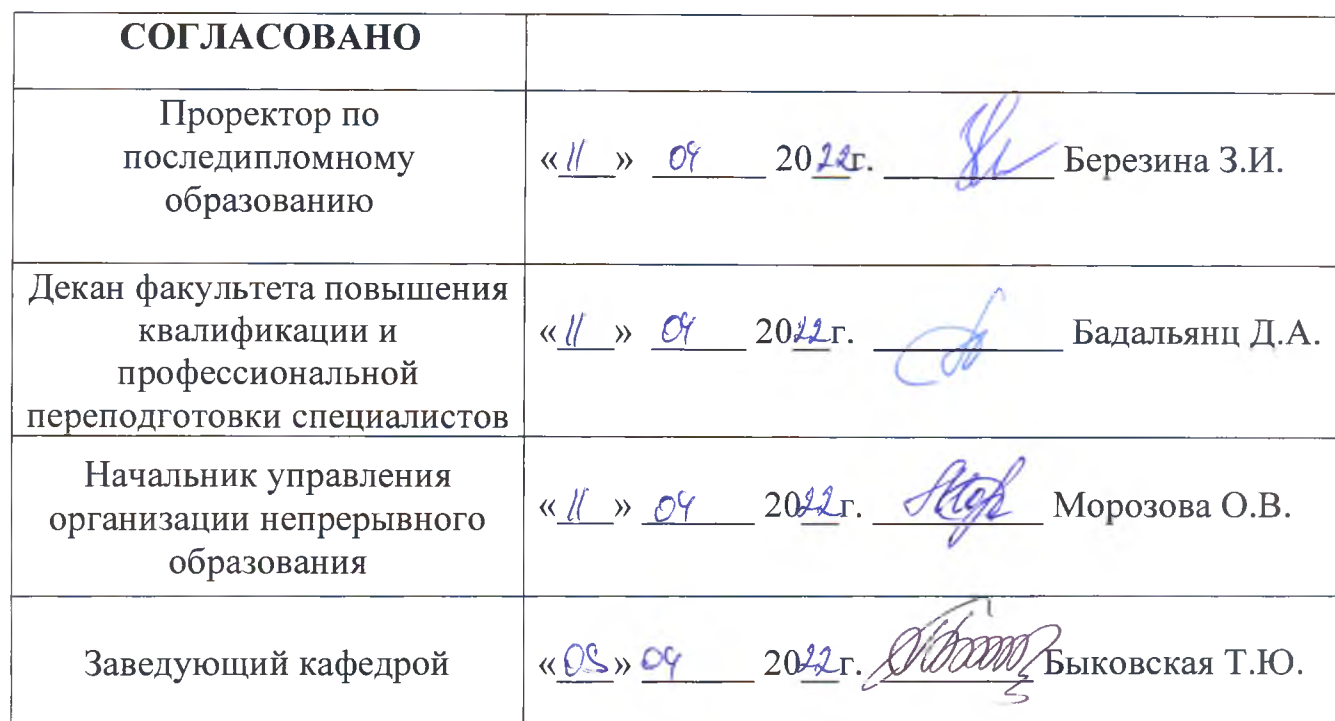 СОГЛАСОВАНО
Проректор по
последипломному
образованию
«11» 04 2022г. Березина З.И.
Декан факультета повышения
квалификации и
профессиональной
переподготовки специалистов
«11» 04 2022г. Бадальянц Д.А.
Начальник управления
организации непрерывного
образования
«11» 04 2022г. Морозова О.В.
Заведующий кафедрой
04 2022г. Быковская Т.Ю.